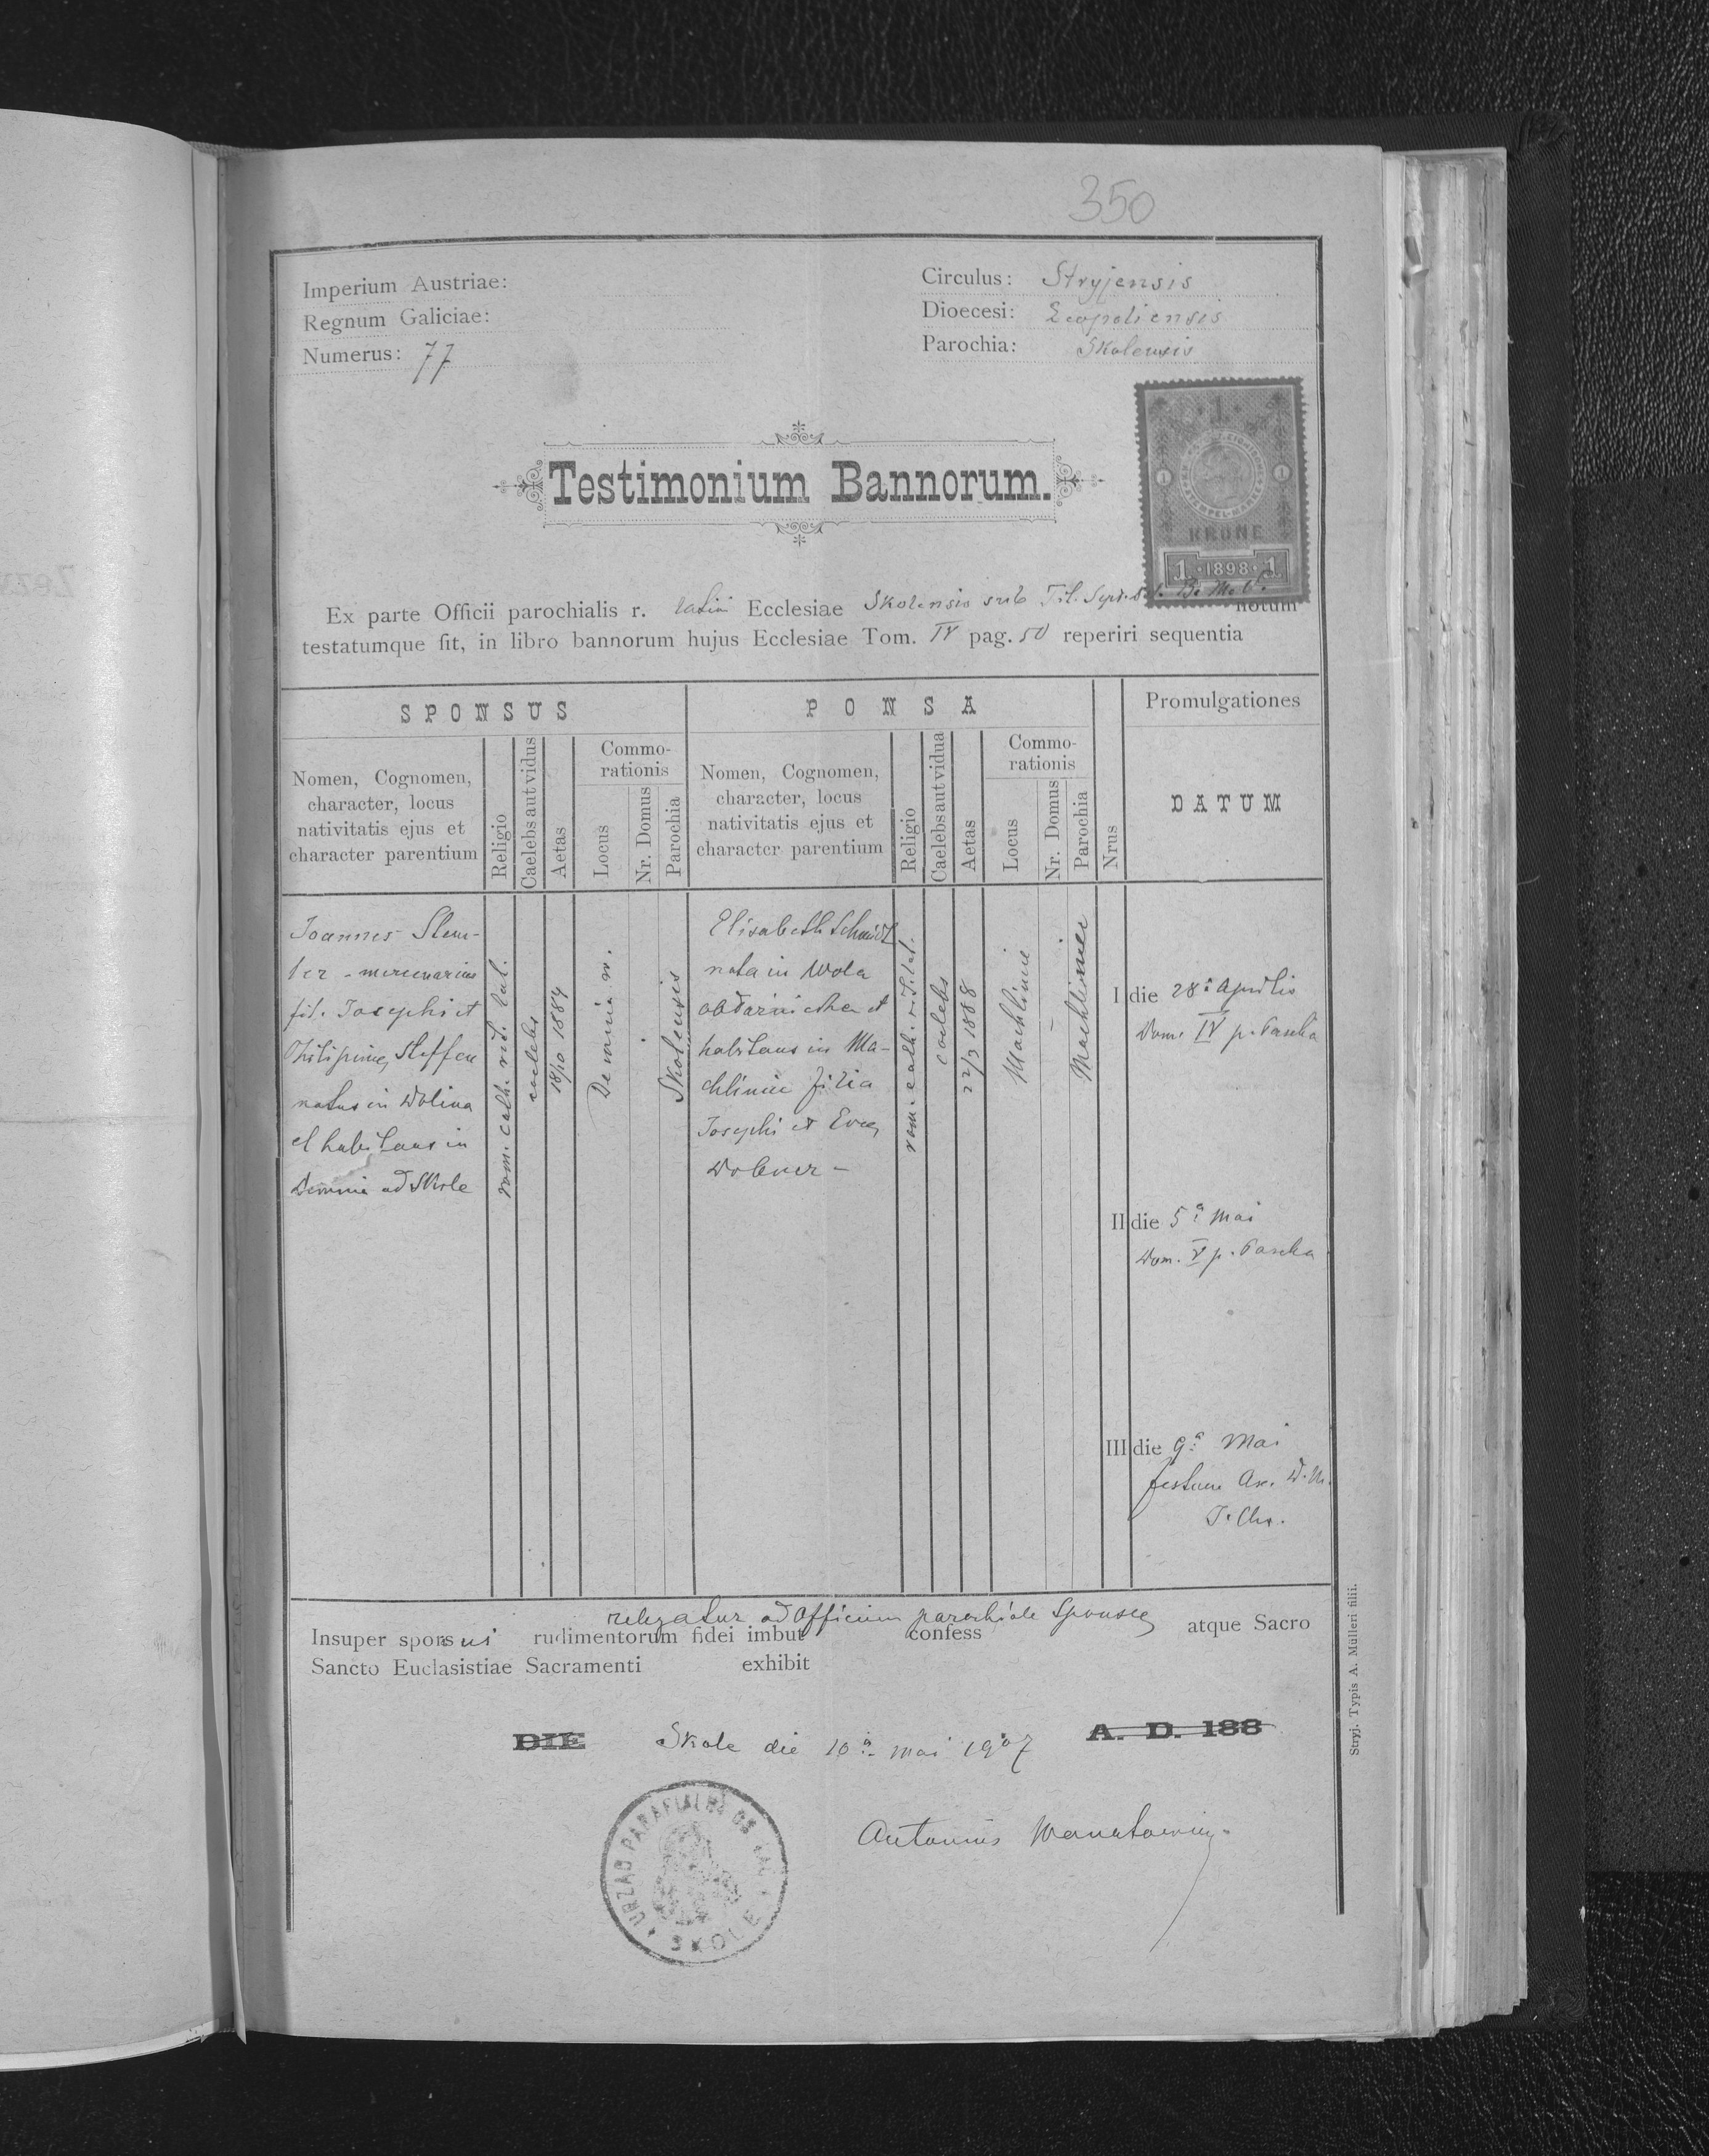 350
Imperium Austriae:
Regnum Galiciae:
Numerus: 77
Circulus: Stryjensis
Dioecesi: Leopoliensis
Parochia: Skolensis
Testimonium Bannorum.
1
KRONE
1 · 1898 · 1
Ex parte Officii parochialis r. latini Ecclesiae Skolensis sub Tit. B. M. V. notum
testatumque fit, in libro bannorum hujus Ecclesiae Tom. IV pag. 50 reperiri sequentia
SPONSUS
PONSA
Promulgationes
Nomen, Cognomen,
character, locus
nativitatis ejus et
character parentium
Religio
Caelebs aut vidus
Aetas
Commo-
rationis
Locus
Nr. Domus
Parochia
Nomen, Cognomen,
character, locus
nativitatis ejus et
character parentium
Religio
Caelebs aut vidua
Aetas
Commo-
rationis
Locus
Nr. Domus
Parochia
Nrus
DATUM
Joannes
mercenarius
fil. Josephi et
Philipinae Steffen
natus in Dolina
et habitans in
Demnia ad Skole
rom. cath. rit. lat.
caelebs
18/10 1884
Demnia w.
Skolensis
Elisabeth Schmidt
nata in Wola
et
habitans in Ma-
chliniec filia
Josephi et Evae
Dobner -
rom. cath. rit. lat.
caelebs
22/3 1888
Machliniec
Machliniec
I die 28a Aprilis
Dom. IV p. Pascha
II die 5a Mai
Dom. V p. Pascha
III die 9a Mai
festum As. D. N.
J. Chr.
relegatur ad Officium parochiale Sponsae
Insuper spons us rudimentorum fidei imbut confess atque Sacro
Sancto Euclasistiae Sacramenti exhibit
DIE Skole die 10a Mai 1907 A. D. 188
Antonius
URZĄD PARAFIALNY OB. ŁAC. SKOLE
Stryj. Typis A. Mülleri filii.